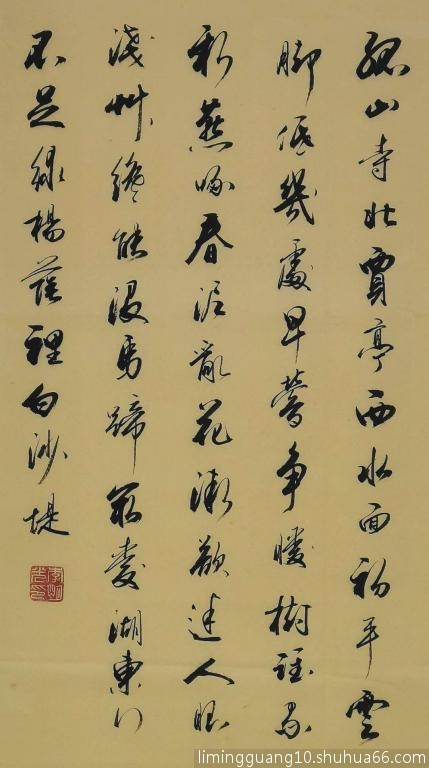 孤山寺北賈亭西水面初平雲
脚低幾處早鶯爭暖樹誰家
新燕啄春泥亂花漸欲迷人眼
淺草纔能沒馬蹄最愛湖東行
不足綠楊蔭裡白沙堤
limingguang10.shuhua66.com